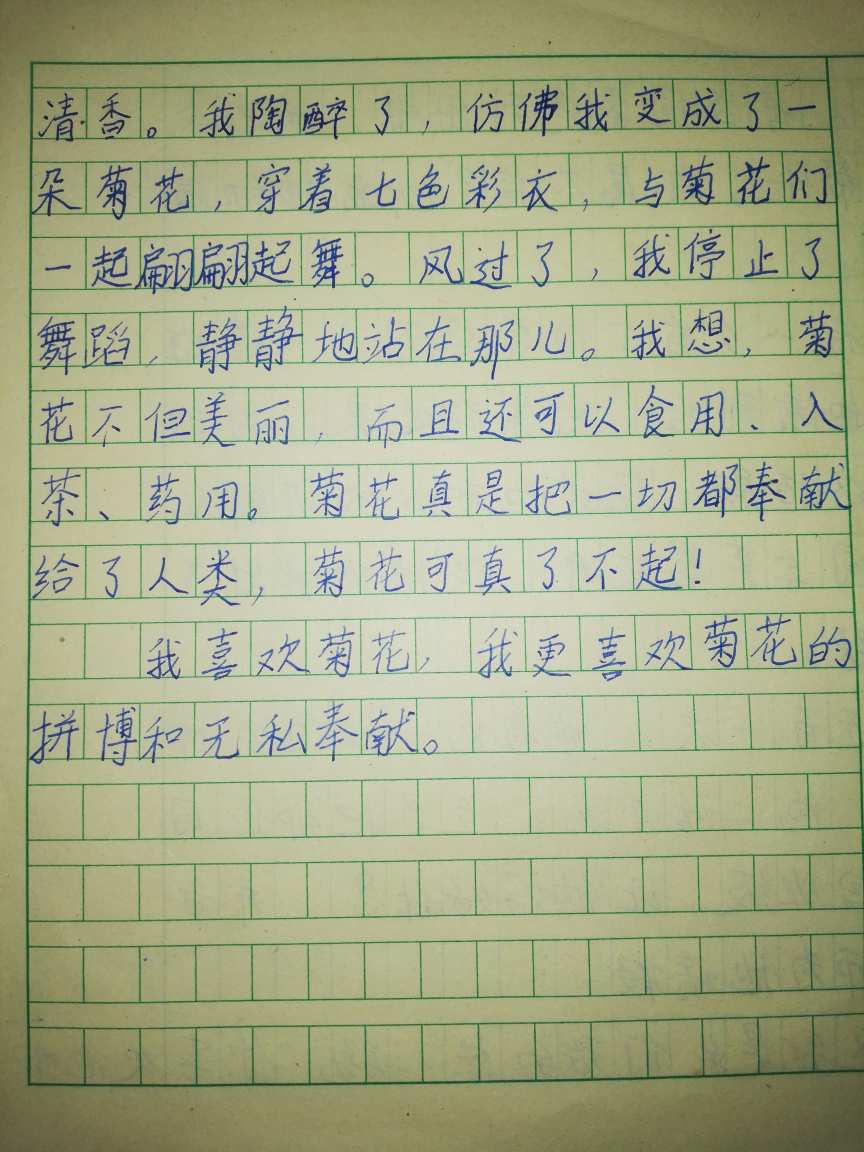 清香。我陶醉了，仿佛我变成了一
朵菊花，穿着七色彩衣，与菊花们
一起翩翩起舞。风过了，我停止了
舞蹈，静静地站在那儿。我想，菊
花不但美丽，而且还可以食用、入
茶、药用。菊花真是把一切都奉献
给了人类，菊花可真了不起！
我喜欢菊花，我更喜欢菊花的
拼博和无私奉献。